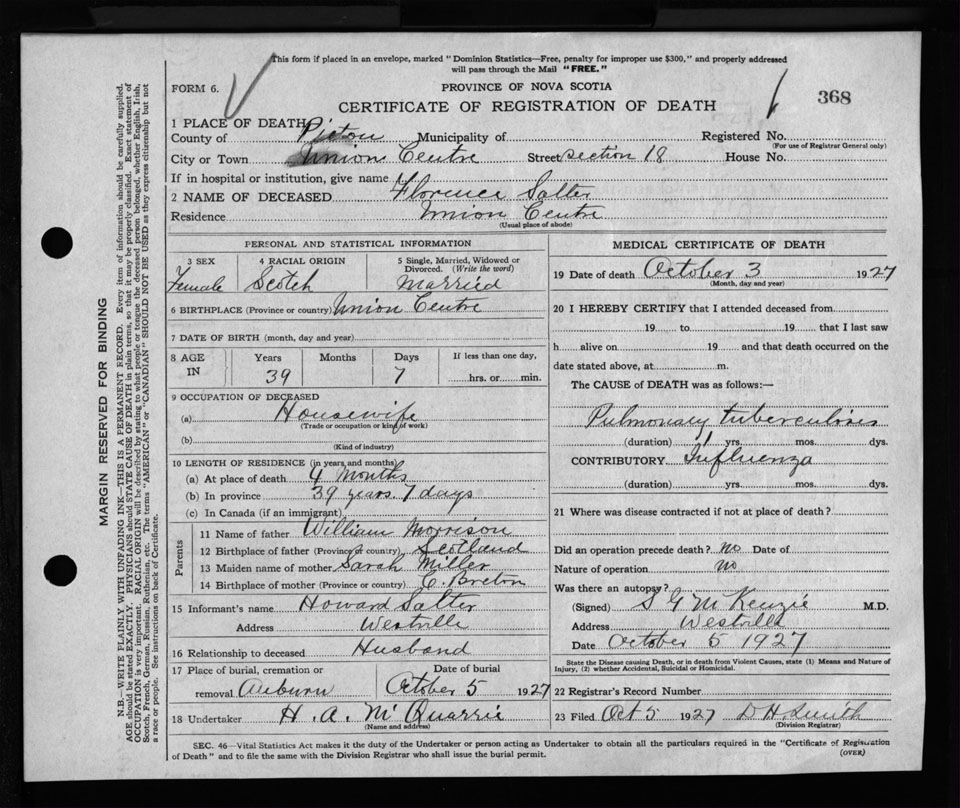 This form if placed in an envelope, marked "Dominion Statistics—Free, penalty for improper use $300," and properly addressed
will pass through the Mail "FREE."
FORM 6.
PROVINCE OF NOVA SCOTIA
CERTIFICATE OF REGISTRATION OF DEATH
368
1 PLACE OF DEATH
County of Pictou Municipality of Registered No.
(For use of Registrar General only)
City or Town Union Centre Street section 18 House No.
If in hospital or institution, give name
2 NAME OF DECEASED Florence Salter
Residence Union Centre
(Usual place of abode)
PERSONAL AND STATISTICAL INFORMATION
3 SEX 4 RACIAL ORIGIN 5 Single, Married, Widowed or Divorced. (Write the word)
Female Scotch Married
6 BIRTHPLACE (Province or country) Union Centre
7 DATE OF BIRTH (month, day and year)
8 AGE IN Years Months Days If less than one day,
39 7 hrs. or min.
9 OCCUPATION OF DECEASED
(a) Housewife
(Trade or occupation or kind of work)
(b)
(Kind of industry)
10 LENGTH OF RESIDENCE (in years and months)
(a) At place of death 4 Months
(b) In province 39 years. 7 days
(c) In Canada (if an immigrant)
Parents
11 Name of father William Morrison
12 Birthplace of father (Province or country) Scotland
13 Maiden name of mother Sarah Miller
14 Birthplace of mother (Province or country) C. Breton
15 Informant's name Howard Salter
Address Westville
16 Relationship to deceased Husband
17 Place of burial, cremation or removal Auburn
Date of burial October 5 1927
18 Undertaker H. A. McQuarrie
(Name and address)
MEDICAL CERTIFICATE OF DEATH
19 Date of death October 3 1927
(Month, day and year)
20 I HEREBY CERTIFY that I attended deceased from
19 to 19 that I last saw
h alive on 19 and that death occurred on the
date stated above, at m.
The CAUSE of DEATH was as follows:—
Pulmonary tuberculosis
(duration) 1 yrs. mos. dys.
CONTRIBUTORY Influenza
(duration) yrs. mos. dys.
21 Where was disease contracted if not at place of death?
Did an operation precede death? No Date of
Nature of operation no
Was there an autopsy?
(Signed) S G McKenzie M.D.
Address Westville
Date October 5 1927
State the Disease causing Death, or in death from Violent Causes, state (1) Means and Nature of
Injury, (2) whether Accidental, Suicidal or Homicidal.
22 Registrar's Record Number
23 Filed Oct 5 1927 D H. Smith
(Division Registrar)
SEC. 46—Vital Statistics Act makes it the duty of the Undertaker or person acting as Undertaker to obtain all the particulars required in the "Certificate of Registration
of Death" and to file the same with the Division Registrar who shall issue the burial permit.
(OVER)
MARGIN RESERVED FOR BINDING
N.B.—WRITE PLAINLY WITH UNFADING INK—THIS IS A PERMANENT RECORD. Every item of information should be carefully supplied.
AGE should be stated EXACTLY. PHYSICIANS should STATE CAUSE OF DEATH in plain terms, so that it may be properly classified. Exact statement of
OCCUPATION is very important. RACIAL ORIGIN will be described by stating to what people or tongue the deceased person belonged, whether English, Irish,
Scotch, French, German, Russian, Ruthenian, etc. The terms "AMERICAN" or "CANADIAN" SHOULD NOT BE USED as they express citizenship but not
a race or people. See instructions on back of Certificate.